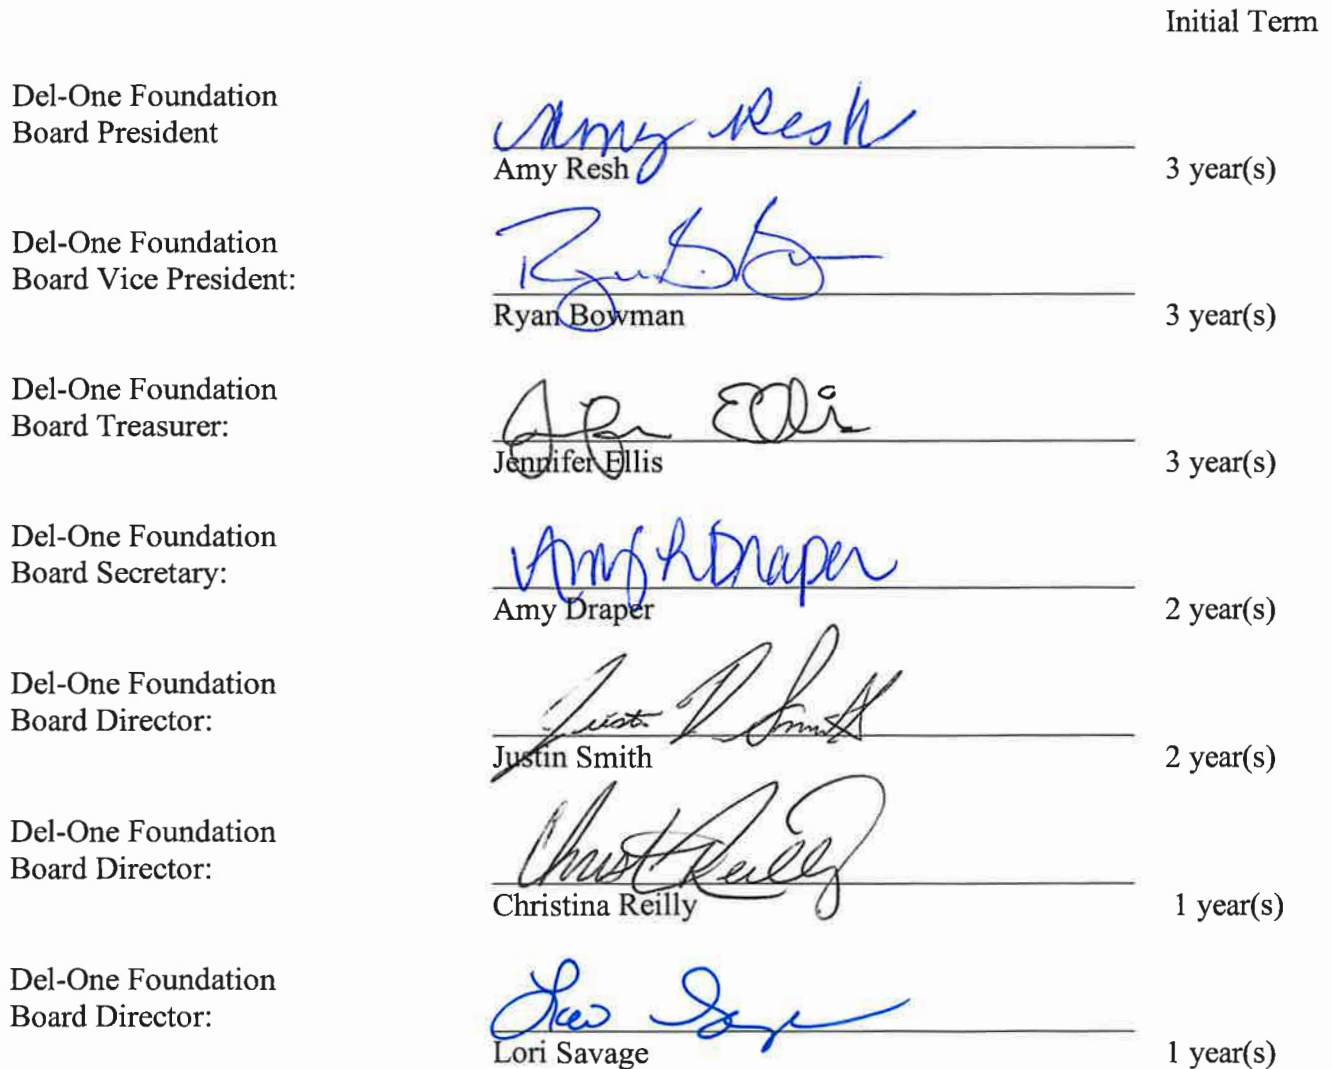 Initial Term
Del-One Foundation
Board President
Amy Resh
Amy Resh
3 year(s)
Del-One Foundation
Board Vice President:
Ryan Bowman
3 year(s)
Del-One Foundation
Board Treasurer:
Ellis
Jennifer Ellis
3 year(s)
Del-One Foundation
Board Secretary:
Amy R Draper
Amy Draper
2 year(s)
Del-One Foundation
Board Director:
Justin D Smith
Justin Smith
2 year(s)
Del-One Foundation
Board Director:
Reilly
Christina Reilly
1 year(s)
Del-One Foundation
Board Director:
Lori Savage
1 year(s)